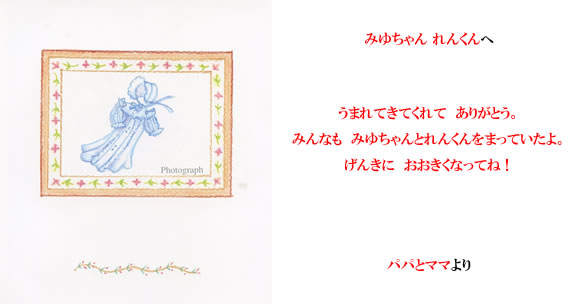 Photograph
みゆちゃん れんくんへ
うまれてきてくれて ありがとう。
みんなも みゆちゃんとれんくんをまっていたよ。
げんきに おおきくなってね！
パパとママより